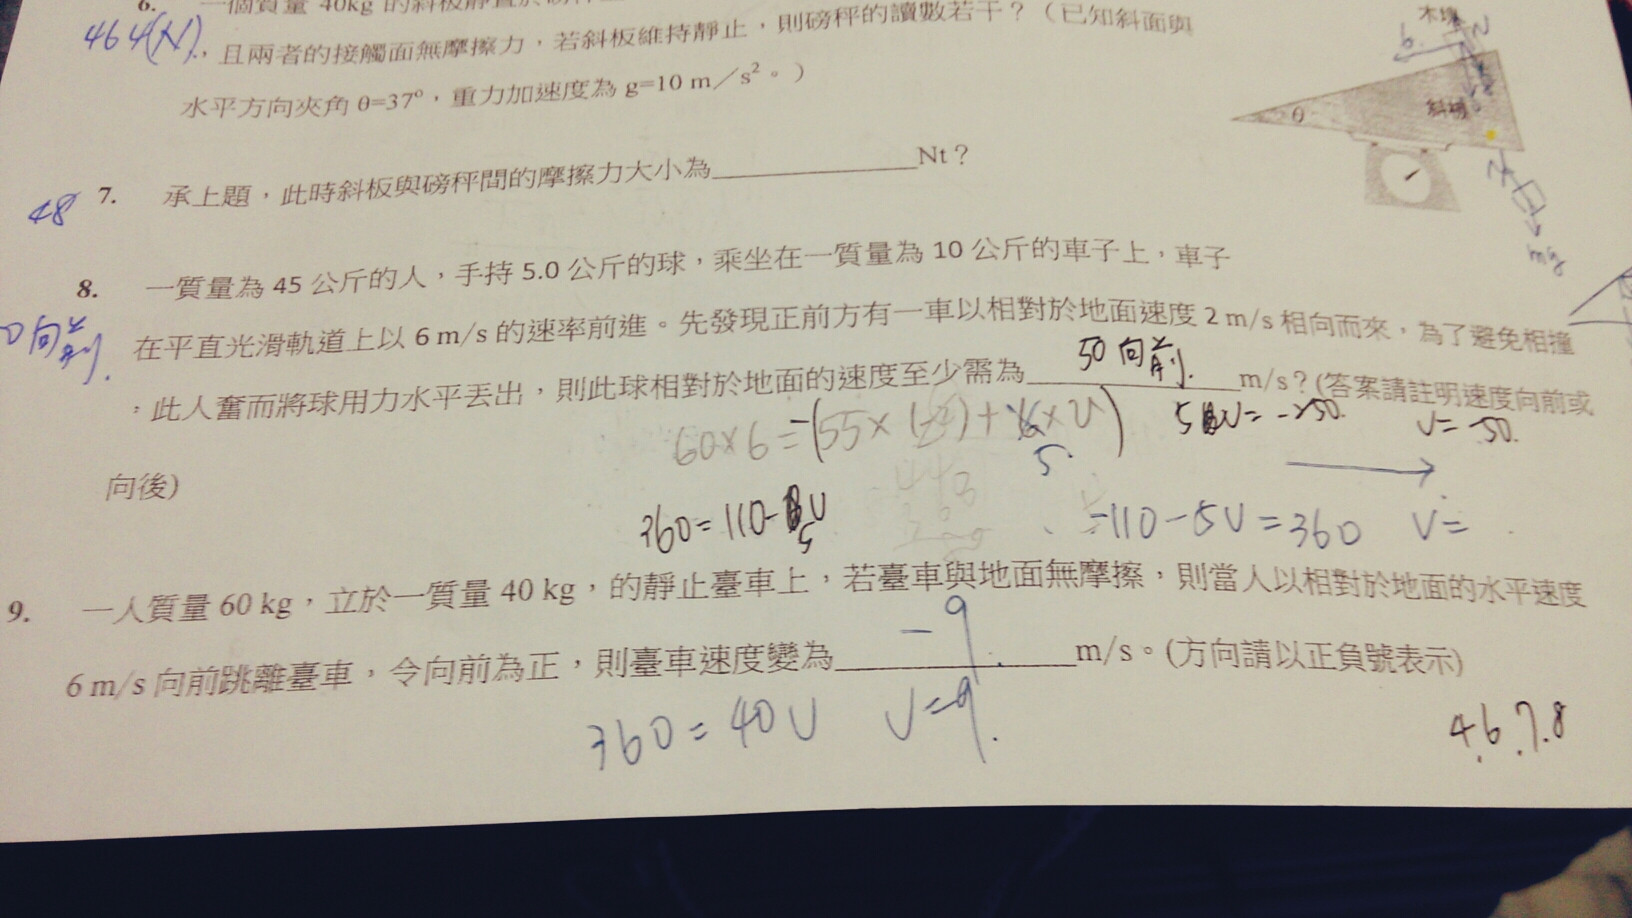 6. 一個質量 40kg 的斜板靜置於磅秤上
464(N).
，且兩者的接觸面無摩擦力，若斜板維持靜止，則磅秤的讀數若干？（已知斜面與
水平方向夾角 θ=37°，重力加速度為 g=10 m／s²。）
木塊
N
θ
斜板
N
mg
48
7. 承上題，此時斜板與磅秤間的摩擦力大小為＿＿＿＿Nt？
8. 一質量為 45 公斤的人，手持 5.0 公斤的球，乘坐在一質量為 10 公斤的車子上，車子
0向前.
在平直光滑軌道上以 6 m/s 的速率前進。先發現正前方有一車以相對於地面速度 2 m/s 相向而來，為了避免相撞
，此人奮而將球用力水平丟出，則此球相對於地面的速度至少需為 50向前. m/s？(答案請註明速度向前或
60×6=-(55×(-2)+ ×U)
5
U=-250.
V=-50.
向後)
360=110-5U
-110-5U=360 V=
9. 一人質量 60 kg，立於一質量 40 kg，的靜止臺車上，若臺車與地面無摩擦，則當人以相對於地面的水平速度
6 m/s 向前跳離臺車，令向前為正，則臺車速度變為 -9. m/s。(方向請以正負號表示)
360=40U V=9.
4.6.7.8